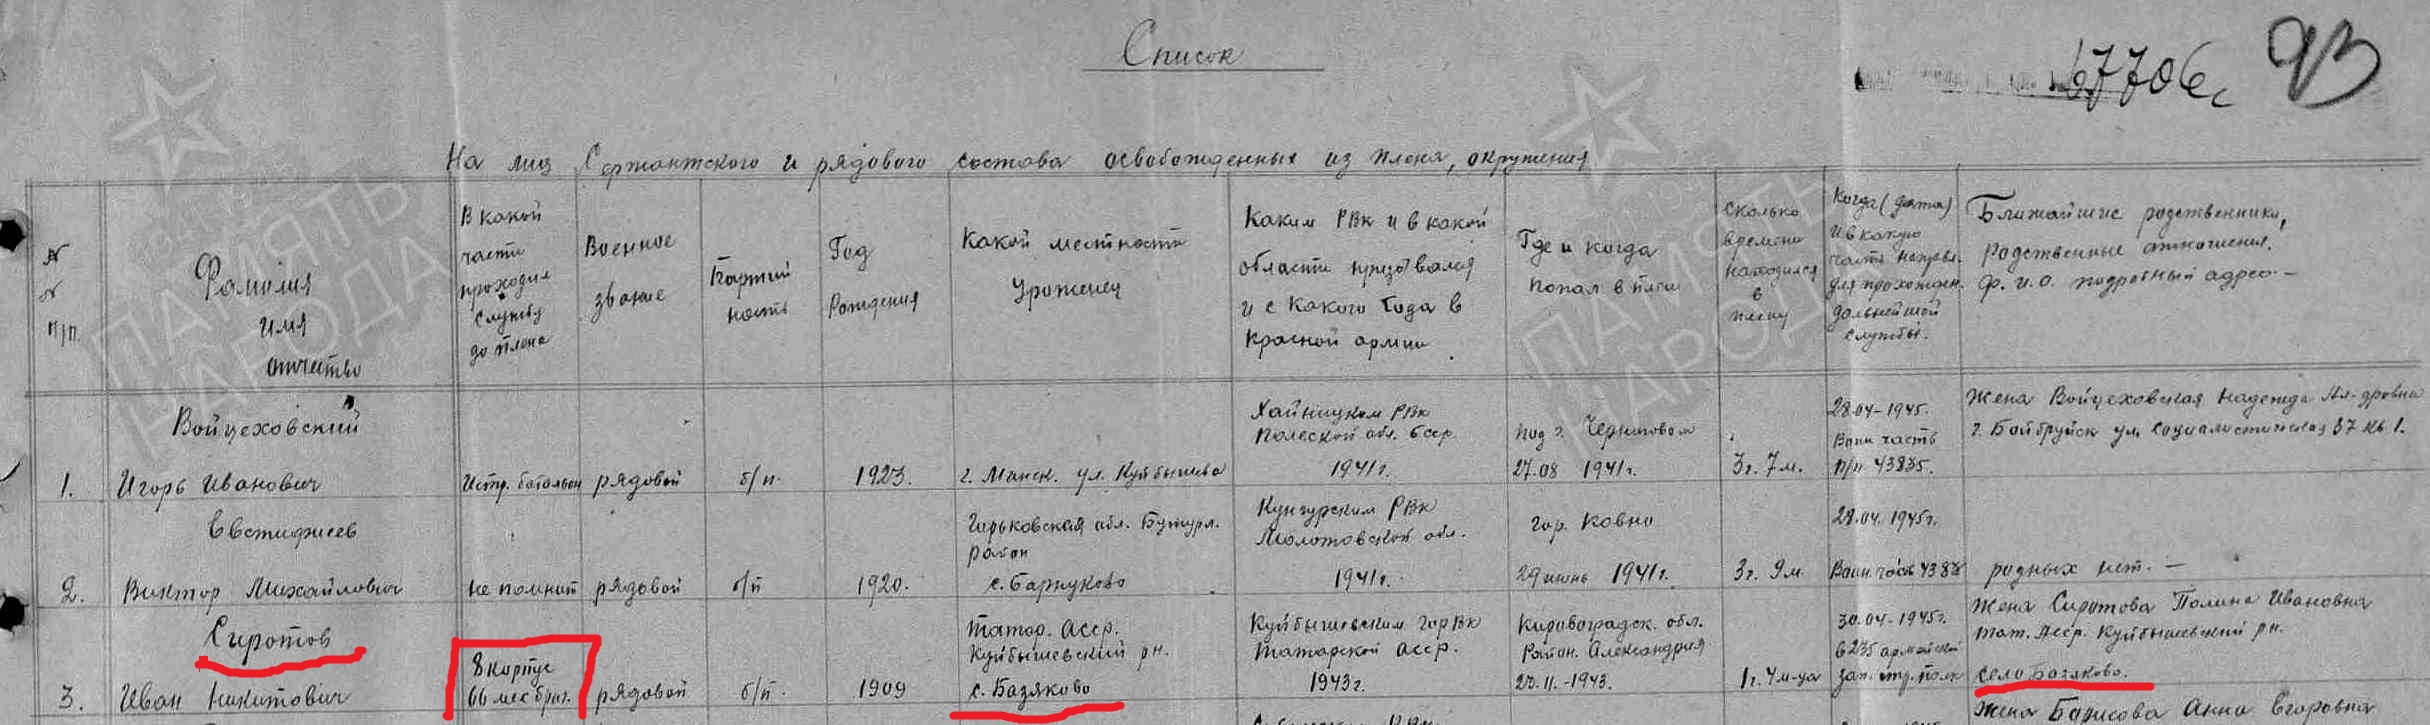 Список
67706с
93
На лиц Сержантского и рядового состава освобожденных из плена, окружения
№
№
п/п.
Фамилия
имя
отчество
В какой
части
проходил
службу
до плена
Военное
звание
Партий
ность
Год
Рождения
Какой местности
Уроженец
Каким РВк и в какой
области призывался
и с какого года в
Красной армии
Где и когда
попал в плен
Сколько
времени
находился
в
плену
Когда (дата)
и в какую
часть направл.
для прохожден.
дальнейшей
службы.
Ближайшие родственники,
родственные отношения.
Ф. и. о. подробный адрес —
Войцеховский
1. Игорь Иванович
Истр. батальон
рядовой
б/п.
1923.
г. Минск. ул. Куйбышева
Хайницким РВк
Полеской обл. бсср.
1941г.
под г. Черниговом
27.08 1941г.
3г. 7м.
28.04-1945.
Воин часть
п/п 43835.
Жена Войцеховская Надежда Ал-дровна
г. Бойбруйск ул. Социалистическая 37 кв 1.
Евстифиев
2. Виктор Михайлович
не помнит
рядовой
б/п
1920.
Горьковская обл. Бутурл.
район
с. Баржуково
Кунгурским РВк
Молотовской обл.
1941г.
гор. Ковно
29 июнь 1941г.
3г. 9м.
28.04.1945г.
Воин. часть
родных нет. —
Сиротов
3. Иван Никитович
8 корпус
66 мех бриг.
рядовой
б/п.
1909
Татар. АССР.
Куйбышевский рн.
с. Базяково
Куйбышевским гор Вк
Татарской АССР.
1943г.
Кировоградск. обл.
Район. Александрия
23.11.-1943.
1г. 4м-ца
30.04-1945г.
6235 армейский
зап. стр. полк
Жена Сиротова Полина Ивановна
Тат. АССР. Куйбышевский рн.
село Базяково.
Жена Борисова Анна Егоровна
ПАМЯТЬ
НАРОДА
ПАМЯТЬ
НАРОДА